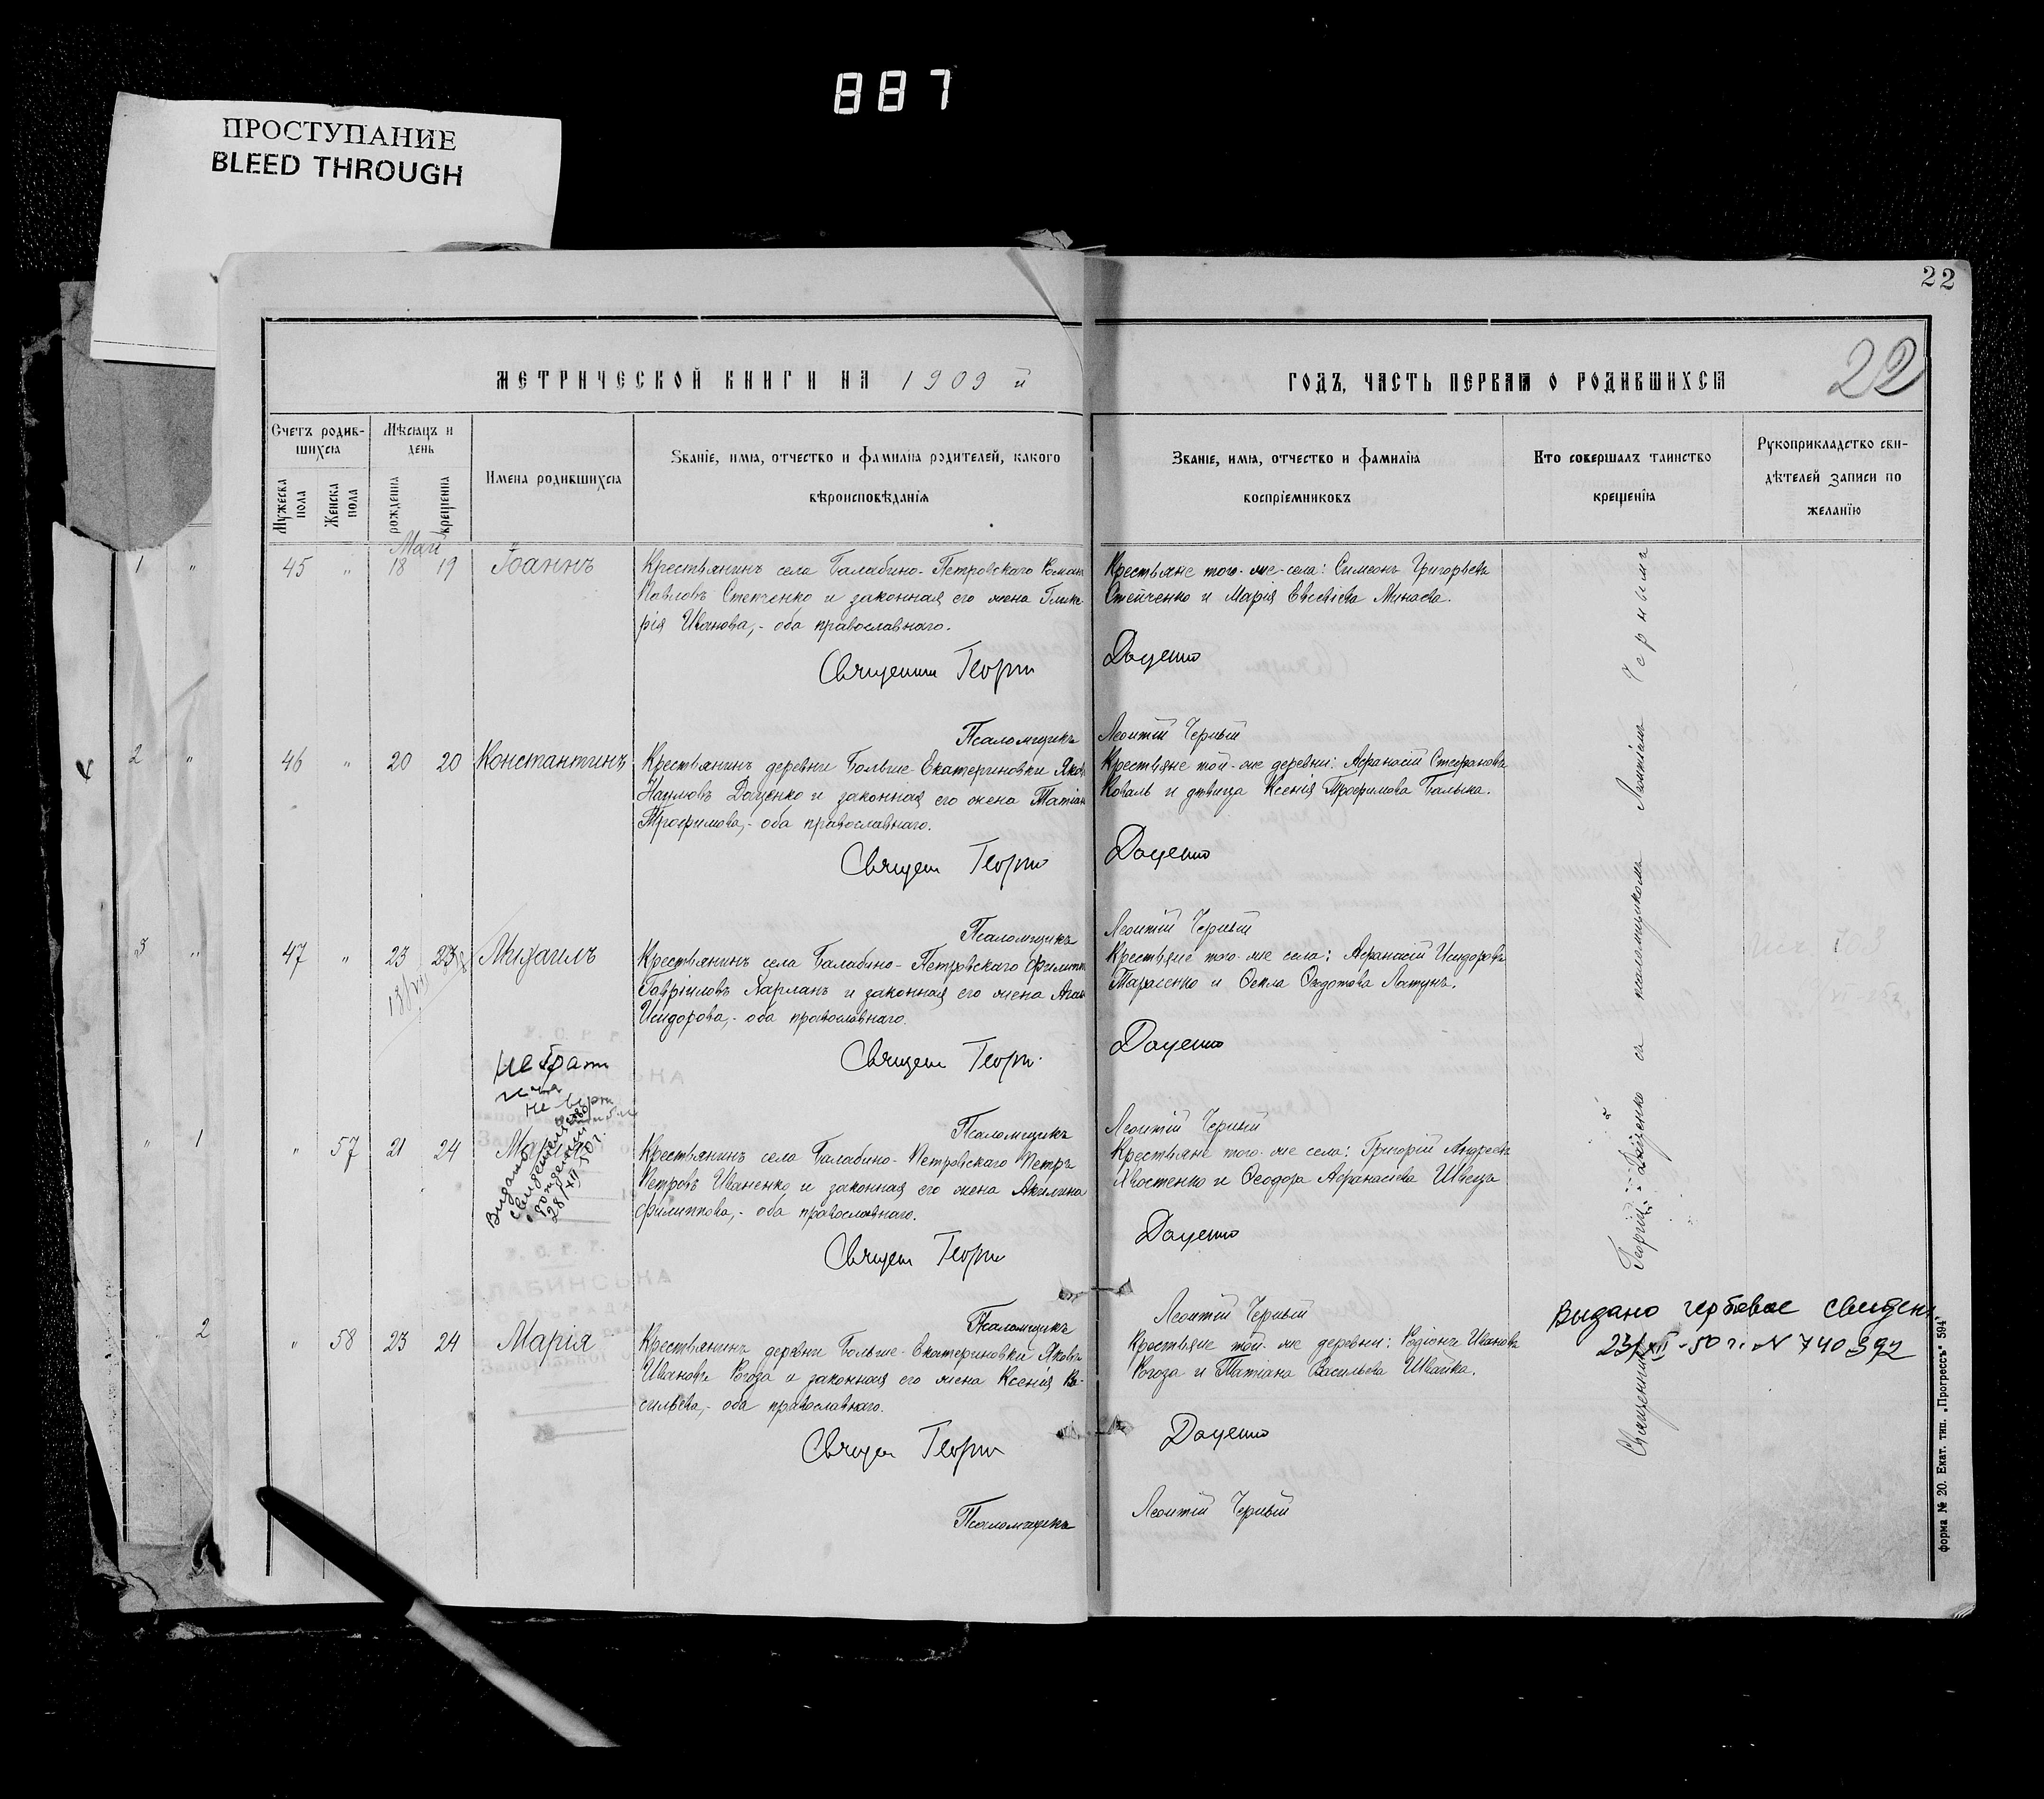 887
ПРОСТУПАНИЕ
BLEED THROUGH
22
22
МЕТРИЧЕСКОЙ КНИГИ НА 1909 й
ГОДЪ, ЧАСТЬ ПЕРВАЯ О РОДИВШИХСЯ
Счетъ родив-
шихся
Мужеска пола
Женска пола
Мѣсяцъ и
день
рожденія
крещенія
Имена родившихся
Званіе, имя, отчество и фамилія родителей, какого
вѣроисповѣданія
Званіе, имя, отчество и фамилія
воспріемниковъ
Кто совершалъ таинство
крещенія
Рукоприкладство сви-
дѣтелей записи по
желанію
Май
1 "
45 " 18 19 Іоаннъ
Крестьянинъ села Балабино-Петровскаго Роман
Павловъ Степченко и законная его жена Глике-
рія Иванова,- оба православнаго.
Крестьяне того-же села: Симеонъ Григорьевъ
Стейченко и Марія Евсевіева Минаева.
Священник Георги Даценко
Псаломщикъ Леонтій Черный
2 "
46 " 20 20 Константинъ
Крестьянинъ деревни Больше-Екатериновки Яков
Наумовъ Даценко и законная его жена Татіан
Трофимова,- оба православнаго.
Крестьяне той-же деревни: Афанасій Стефановъ
Коваль и дѣвица Ксенія Трофимова Балыка.
Священ Георги Даценко
Псаломщикъ Леонтій Черный
3 "
47 " 23 23 Михаилъ
Крестьянинъ села Балабино-Петровскаго Филипп
Гавріиловъ Харланъ и законная его жена Агаѳ
Исидорова,- оба православнаго.
Крестьяне того-же села: Афанасій Исидоровъ
Тарасенко и Ѳекла Ѳедотова Лактунъ.
Священ Георги Даценко
Псаломщикъ Леонтій Черный
не брат
" 1
" 57 21 24
Выдано
свидетельство
о рождении
28/XII 50 г.
Крестьянинъ села Балабино-Петровскаго Петръ
Петровъ Иваненко и законная его жена Акилина
Филиппова,- оба православнаго.
Крестьяне того-же села: Григорій Андреевъ
Хвостенко и Ѳеодора Афанасіева Швецъ
Священ Георги Даценко
Псаломщикъ Леонтій Черный
2
" 58 23 24 Марія
Крестьянинъ деревни Больше-Екатериновки Яковъ
Ивановъ Рогоза и законная его жена Ксенія Ва-
сильева,- оба православнаго.
Крестьяне той-же деревни: Родіонъ Ивановъ
Рогоза и Татіана Васильева Швайка.
Священ Георги Даценко
Псаломщикъ Леонтій Черный
Священникъ Георгій Даценко съ псаломщикомъ Леонтіемъ Чернымъ
Выдано гербовое свиден.
23/XII-50 г. N 740392
БАЛАБИНСЬКА
Форма № 20. Екат. тип. „Прогрессъ" 594